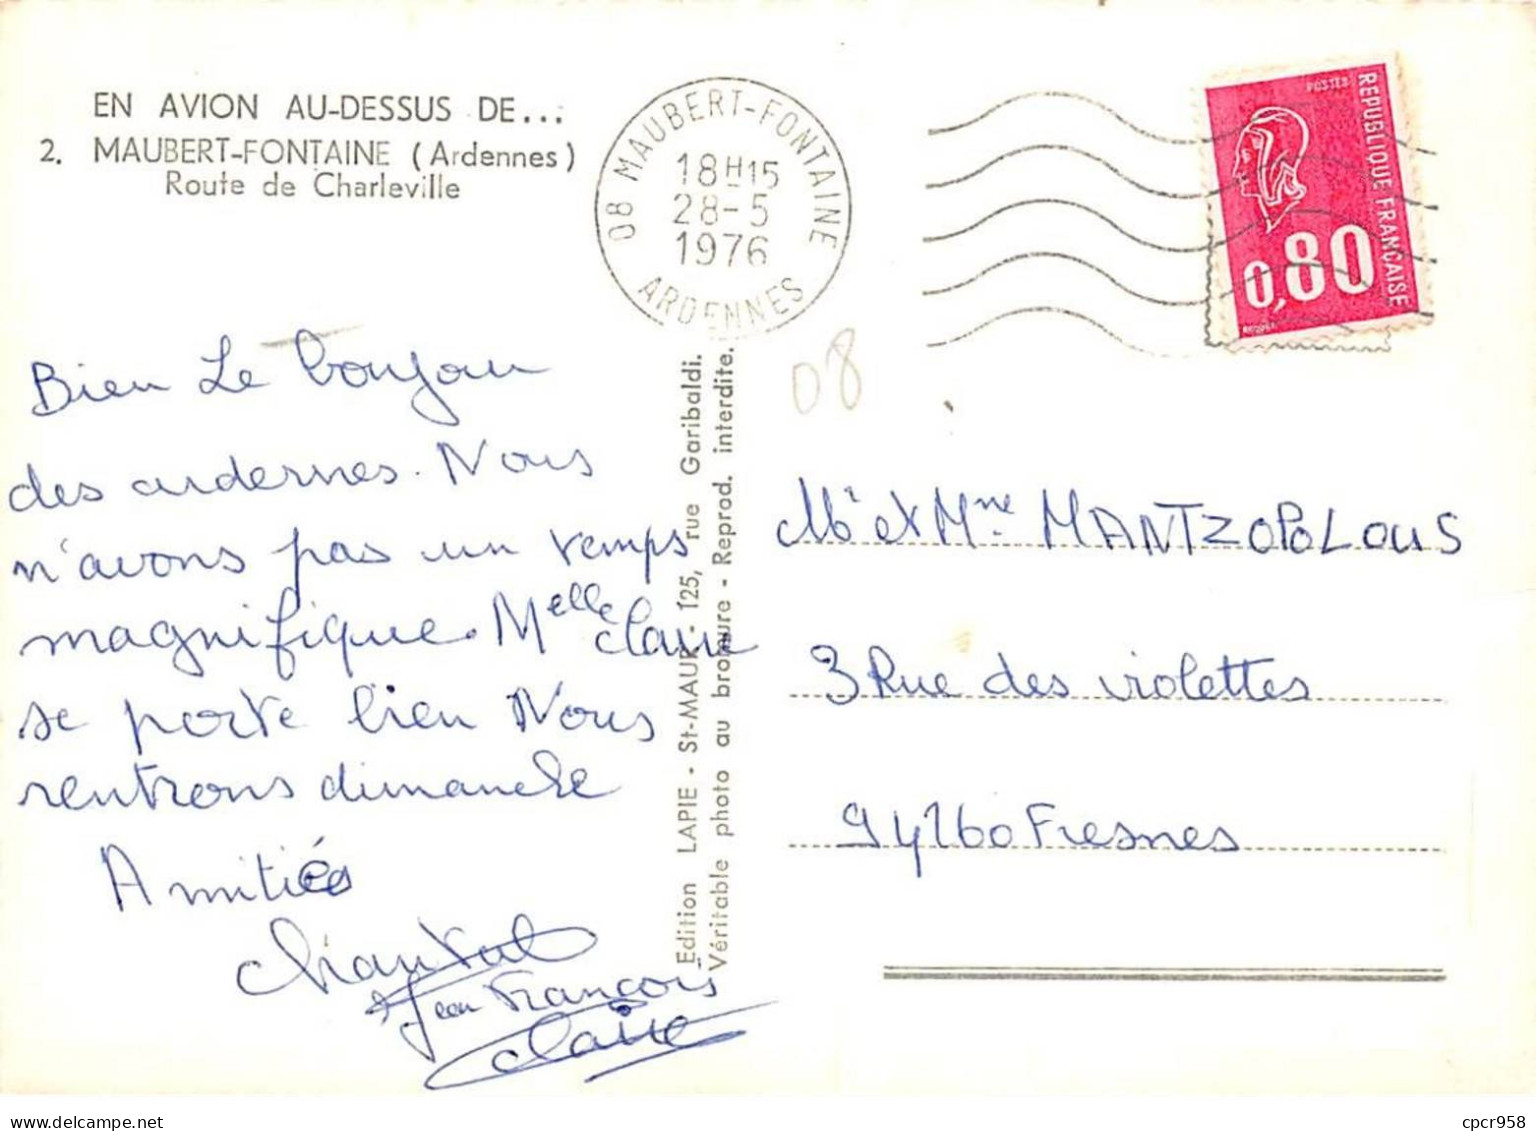 EN AVION AU-DESSUS DE...
2. MAUBERT-FONTAINE (Ardennes)
Route de Charleville
08 MAUBERT-FONTAINE
18H15
28-5
1976
ARDENNES
POSTES
REPUBLIQUE FRANÇAISE
0,80
08
Bien Le bonjour
des ardennes. Nous
n'avons pas un temps
magnifique. Melle claire
se porte bien Nous
rentrons dimanche
Amitiés
Chantal
Jean François
Claire
Edition LAPIE - St-MAUR - 125, rue Garibaldi.
Véritable photo au bromure - Reprod. interdite.
Mr et Mme MANTZOPOLOUS
3 Rue des violettes
94260 Fresnes
cpcr958